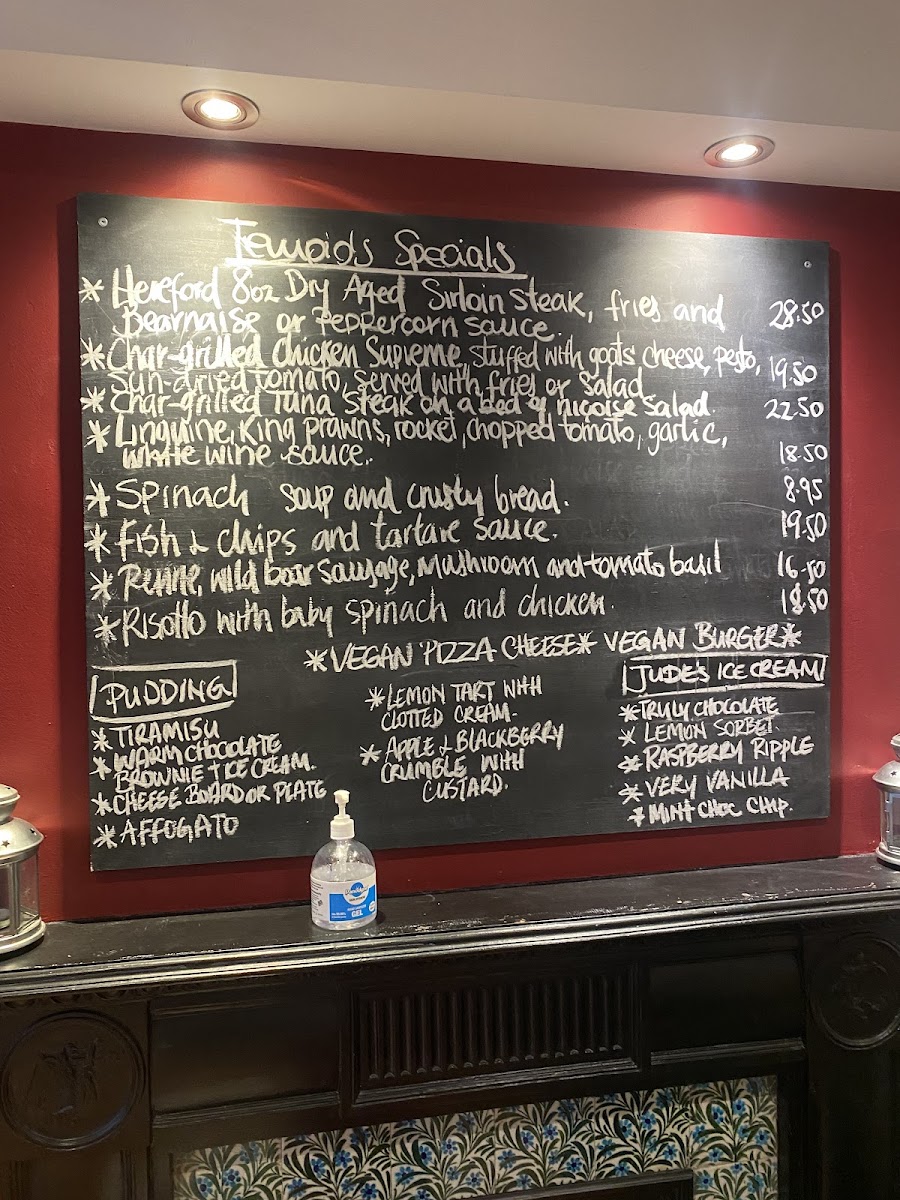 Tempids Specials
* Hereford 8oz Dry Aged Sirloin steak, fries and 28.50
Bearnaise or Peppercorn sauce.
* Char-grilled Chicken Supreme, stuffed with goats cheese, pesto, 19.50
sun-dried tomato, served with fries or salad
* Char-grilled Tuna steak on a bed of niçoise salad. 22.50
* Linguine, King prawns, rocket, chopped tomato, garlic,
white wine sauce. 18.50
* Spinach soup and crusty bread. 8.95
* Fish & chips and tartare sauce. 19.50
* Penne, wild boar sausage, mushroom and tomato basil 16.50
* Risotto with baby spinach and chicken. 18.50
*VEGAN PIZZA CHEESE* VEGAN BURGER*
PUDDING
* TIRAMISU
* WARM CHOCOLATE
BROWNIE + ICE CREAM.
* CHEESE BOARD OR PLATE
* AFFOGATO
* LEMON TART WITH
CLOTTED CREAM.
* APPLE & BLACKBERRY
CRUMBLE WITH
CUSTARD.
JUDE'S ICE CREAM
* TRULY CHOCOLATE
* LEMON SORBET
* RASPBERRY RIPPLE
* VERY VANILLA
* MINT CHOC CHIP.
GEL